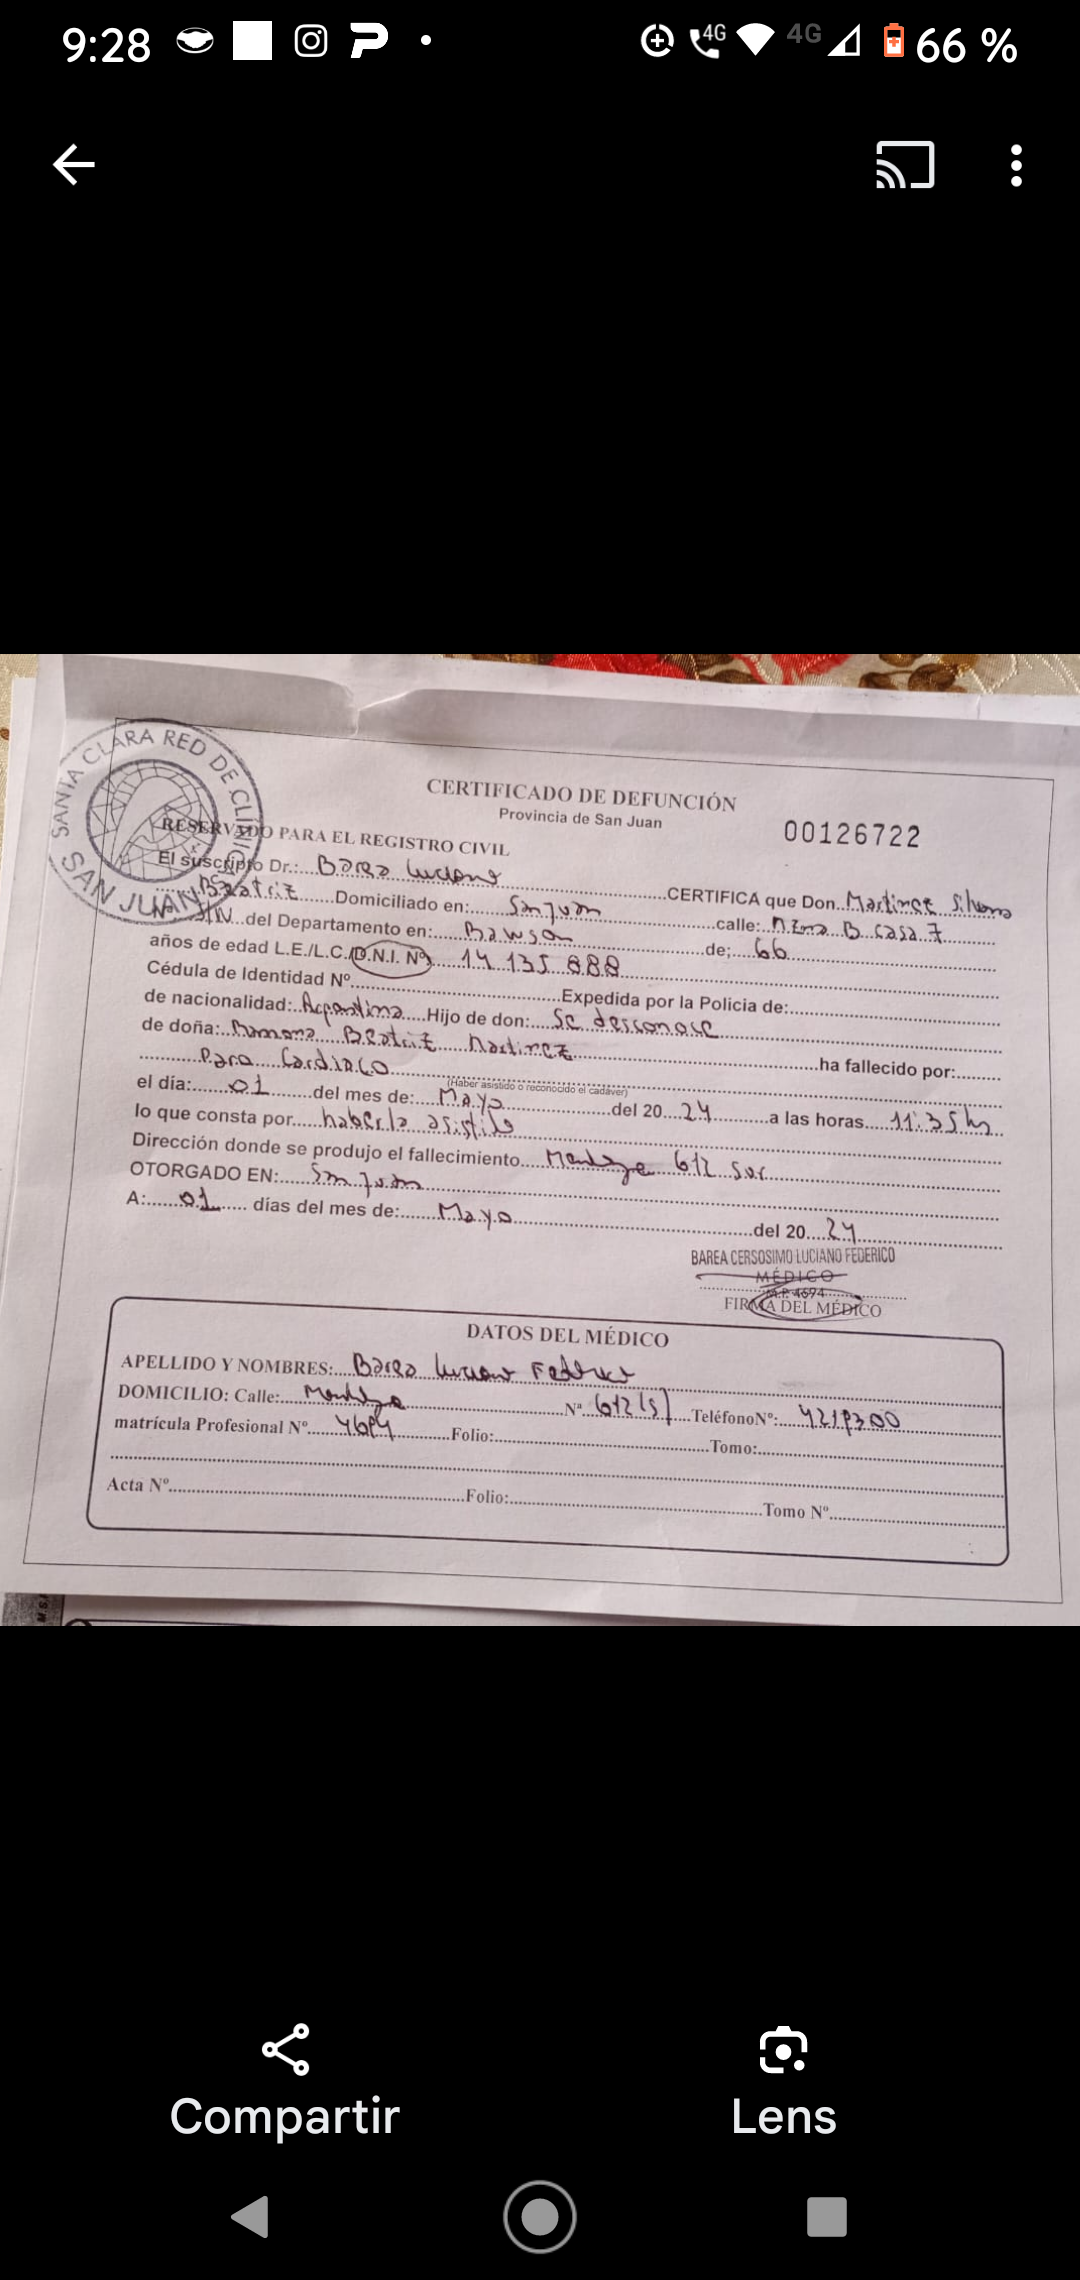 9:28
4G 4G 66 %
SANTA CLARA RED DE CLINIC
SAN JUAN
CERTIFICADO DE DEFUNCIÓN
Provincia de San Juan
00126722
RESERVADO PARA EL REGISTRO CIVIL
El suscripto Dr.: Barea Luciano CERTIFICA que Don Martinez Silvana
Beatriz Domiciliado en: San Juan calle: B casa 7
del Departamento en: Rawson de; 66
años de edad L.E./L.C./D.N.I. Nº 14 135 888
Cédula de Identidad Nº Expedida por la Policia de:
de nacionalidad: Argentina Hijo de don: Se desconose
de doña: Ramona Beatriz Martinez ha fallecido por:
Paro Cardiaco
(Haber asistido o reconocido el cadáver)
el día: 01 del mes de: Mayo del 20 24 a las horas 11:35 hs
lo que consta por haberla asistido
Dirección donde se produjo el fallecimiento Mendoza 612 Sur
OTORGADO EN: San Juan
A: 01 días del mes de: Mayo del 20 24
BAREA CERSOSIMO LUCIANO FEDERICO
MÉDICO
M.P. 4694
FIRMA DEL MÉDICO
DATOS DEL MÉDICO
APELLIDO Y NOMBRES: Barea Luciano Federico
DOMICILIO: Calle: Mendoza Nª 612 (s) TeléfonoNº: 4219300
matrícula Profesional Nº 4694 Folio: Tomo:
Acta Nº Folio: Tomo Nº
Compartir
Lens